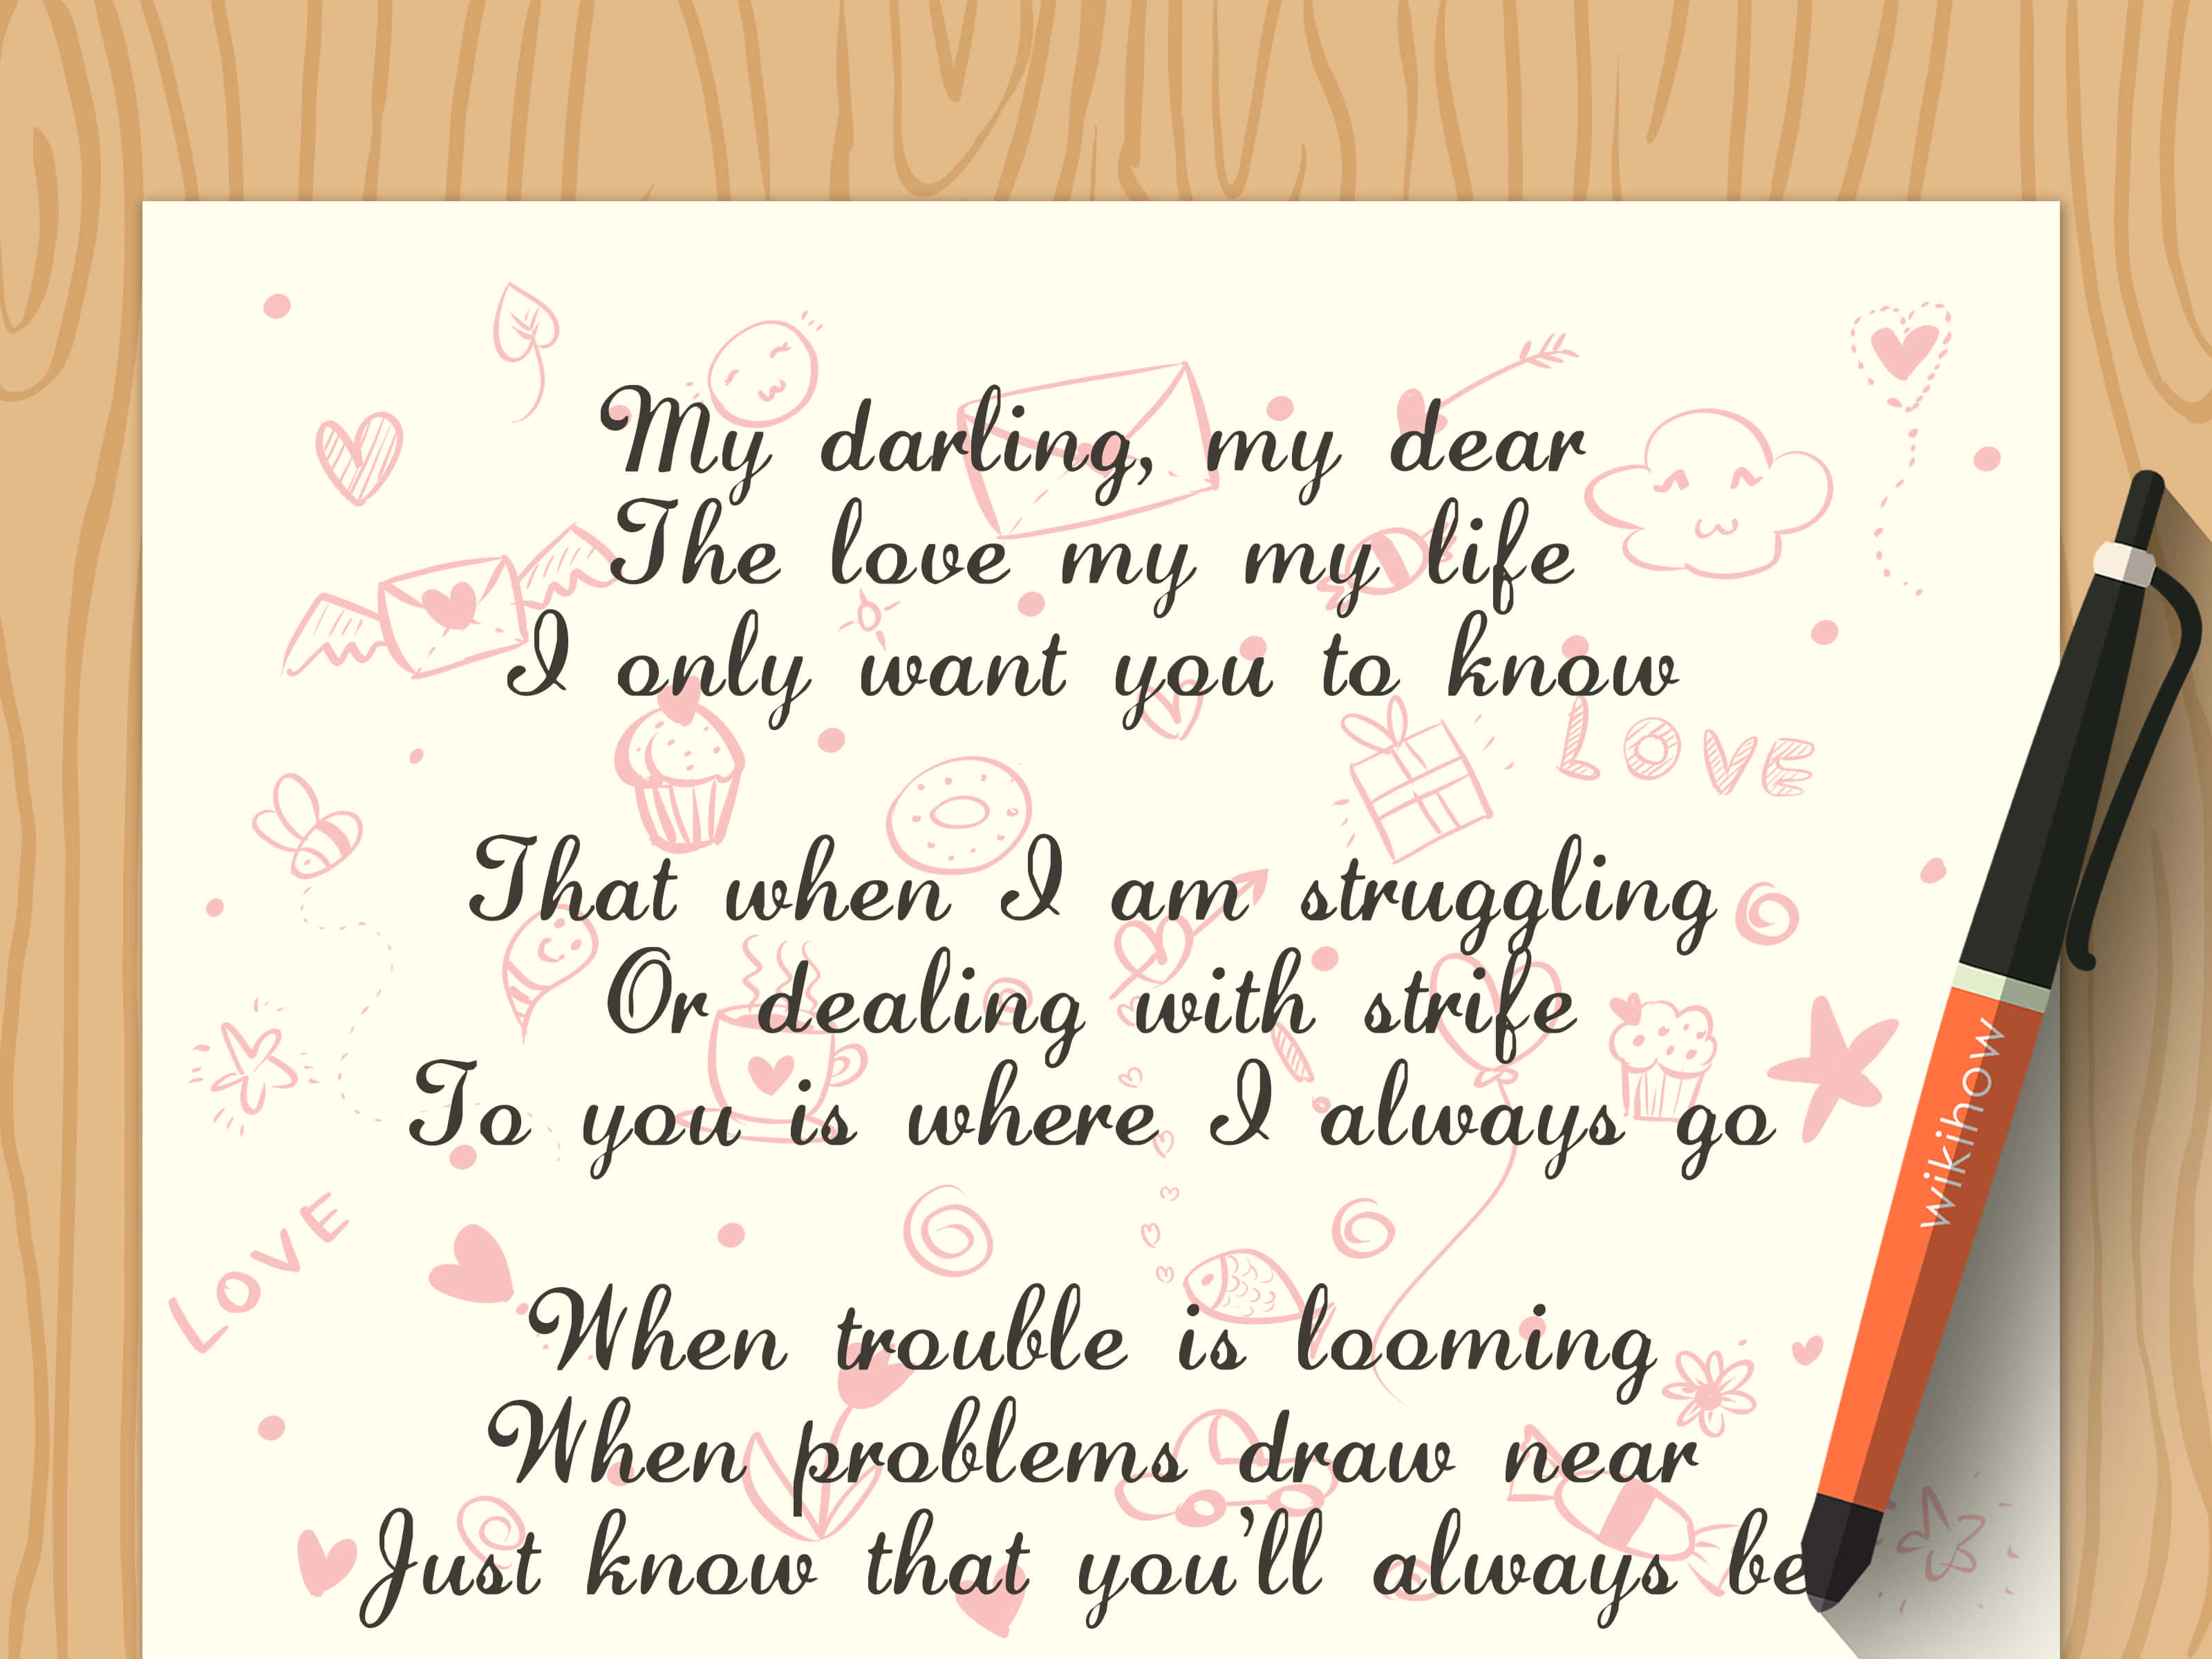 My darling, my dear
The love my my life
I only want you to know
LOVE
That when I am struggling
Or dealing with strife
To you is where I always go
LOVE
When trouble is looming
When problems draw near
Just know that you'll always be
wikihow